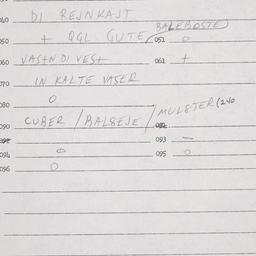 040 DI REJNKAJT
BALEBOSTE
050 + QGL GUTE 051 0
060 VASTN DI VEST 061 +
070 IN KALTE VASER
080 0
090 CUBER / BALBEJE / MULTER (240
093 —
094 0 095 0
096 0